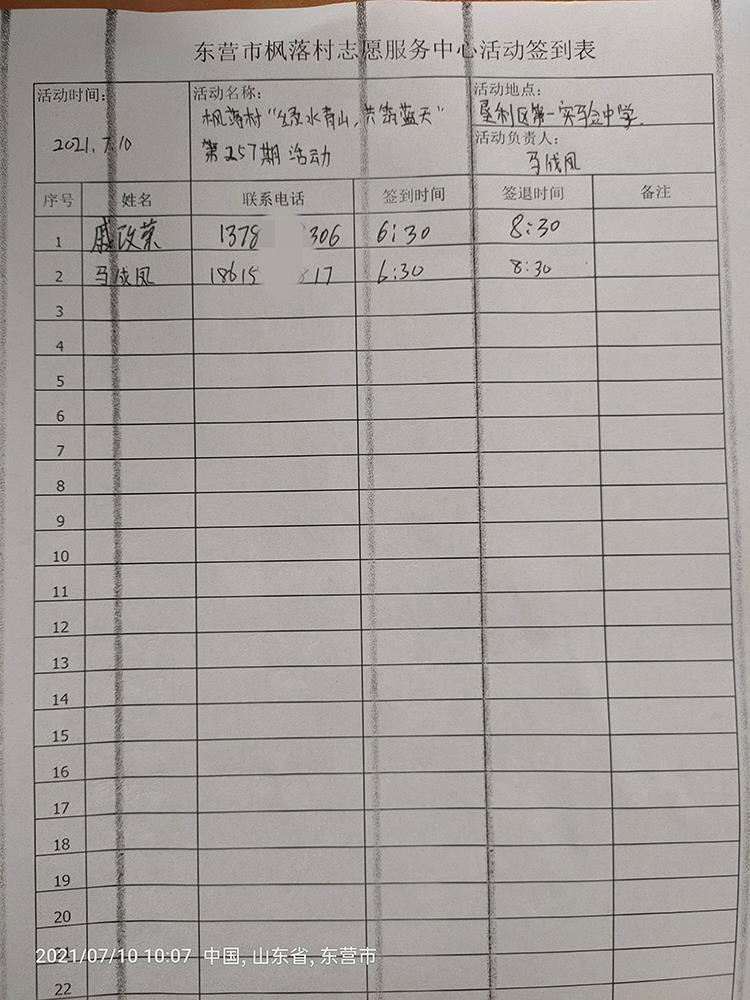 东营市枫落村志愿服务中心活动签到表
活动时间:
2021.7.10
活动名称:
枫落村“绿水青山,共筑蓝天”
第257期活动
活动地点:
垦利区第一实验中学
活动负责人:
马成凤
序号 姓名 联系电话 签到时间 签退时间 备注
1 戚改荣 1378 306 6:30 8:30
2 马成凤 18615 817 6:30 8:30
3
4
5
6
7
8
9
10
11
12
13
14
15
16
17
18
19
20
21
22
2021/07/10 10:07 中国, 山东省, 东营市